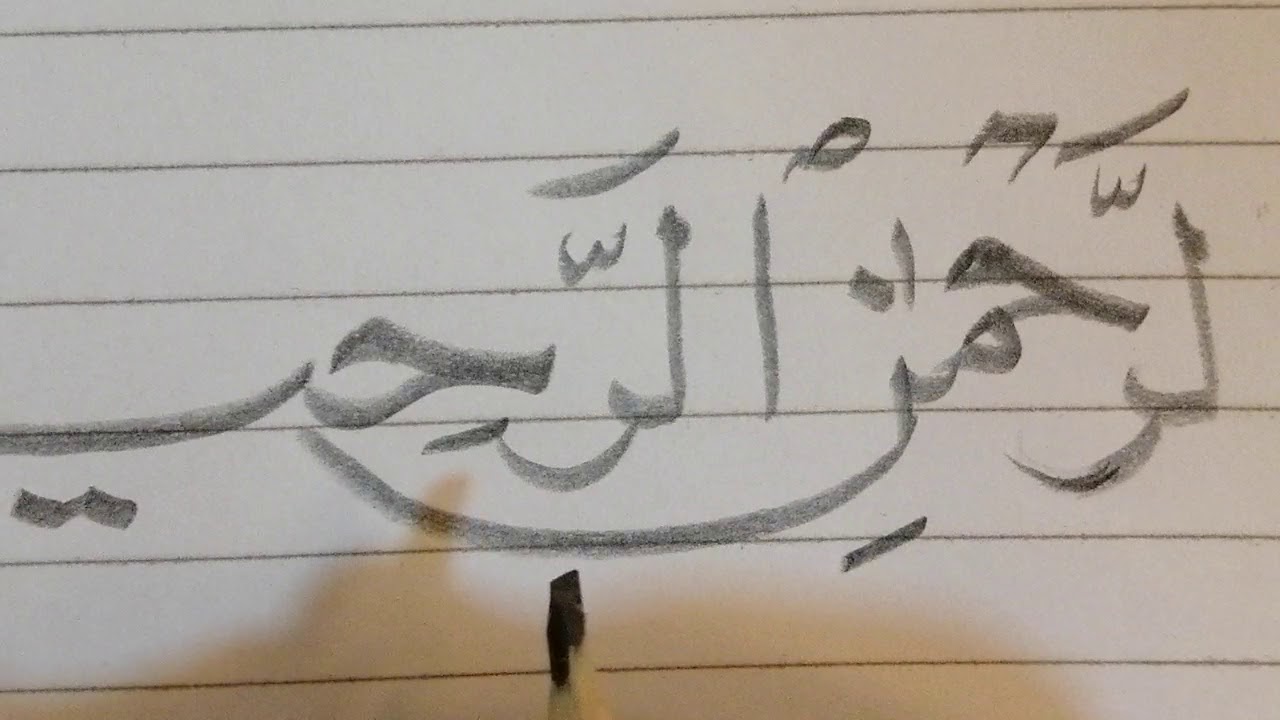 لرَّحْمٰنِ الرَّحِيـ